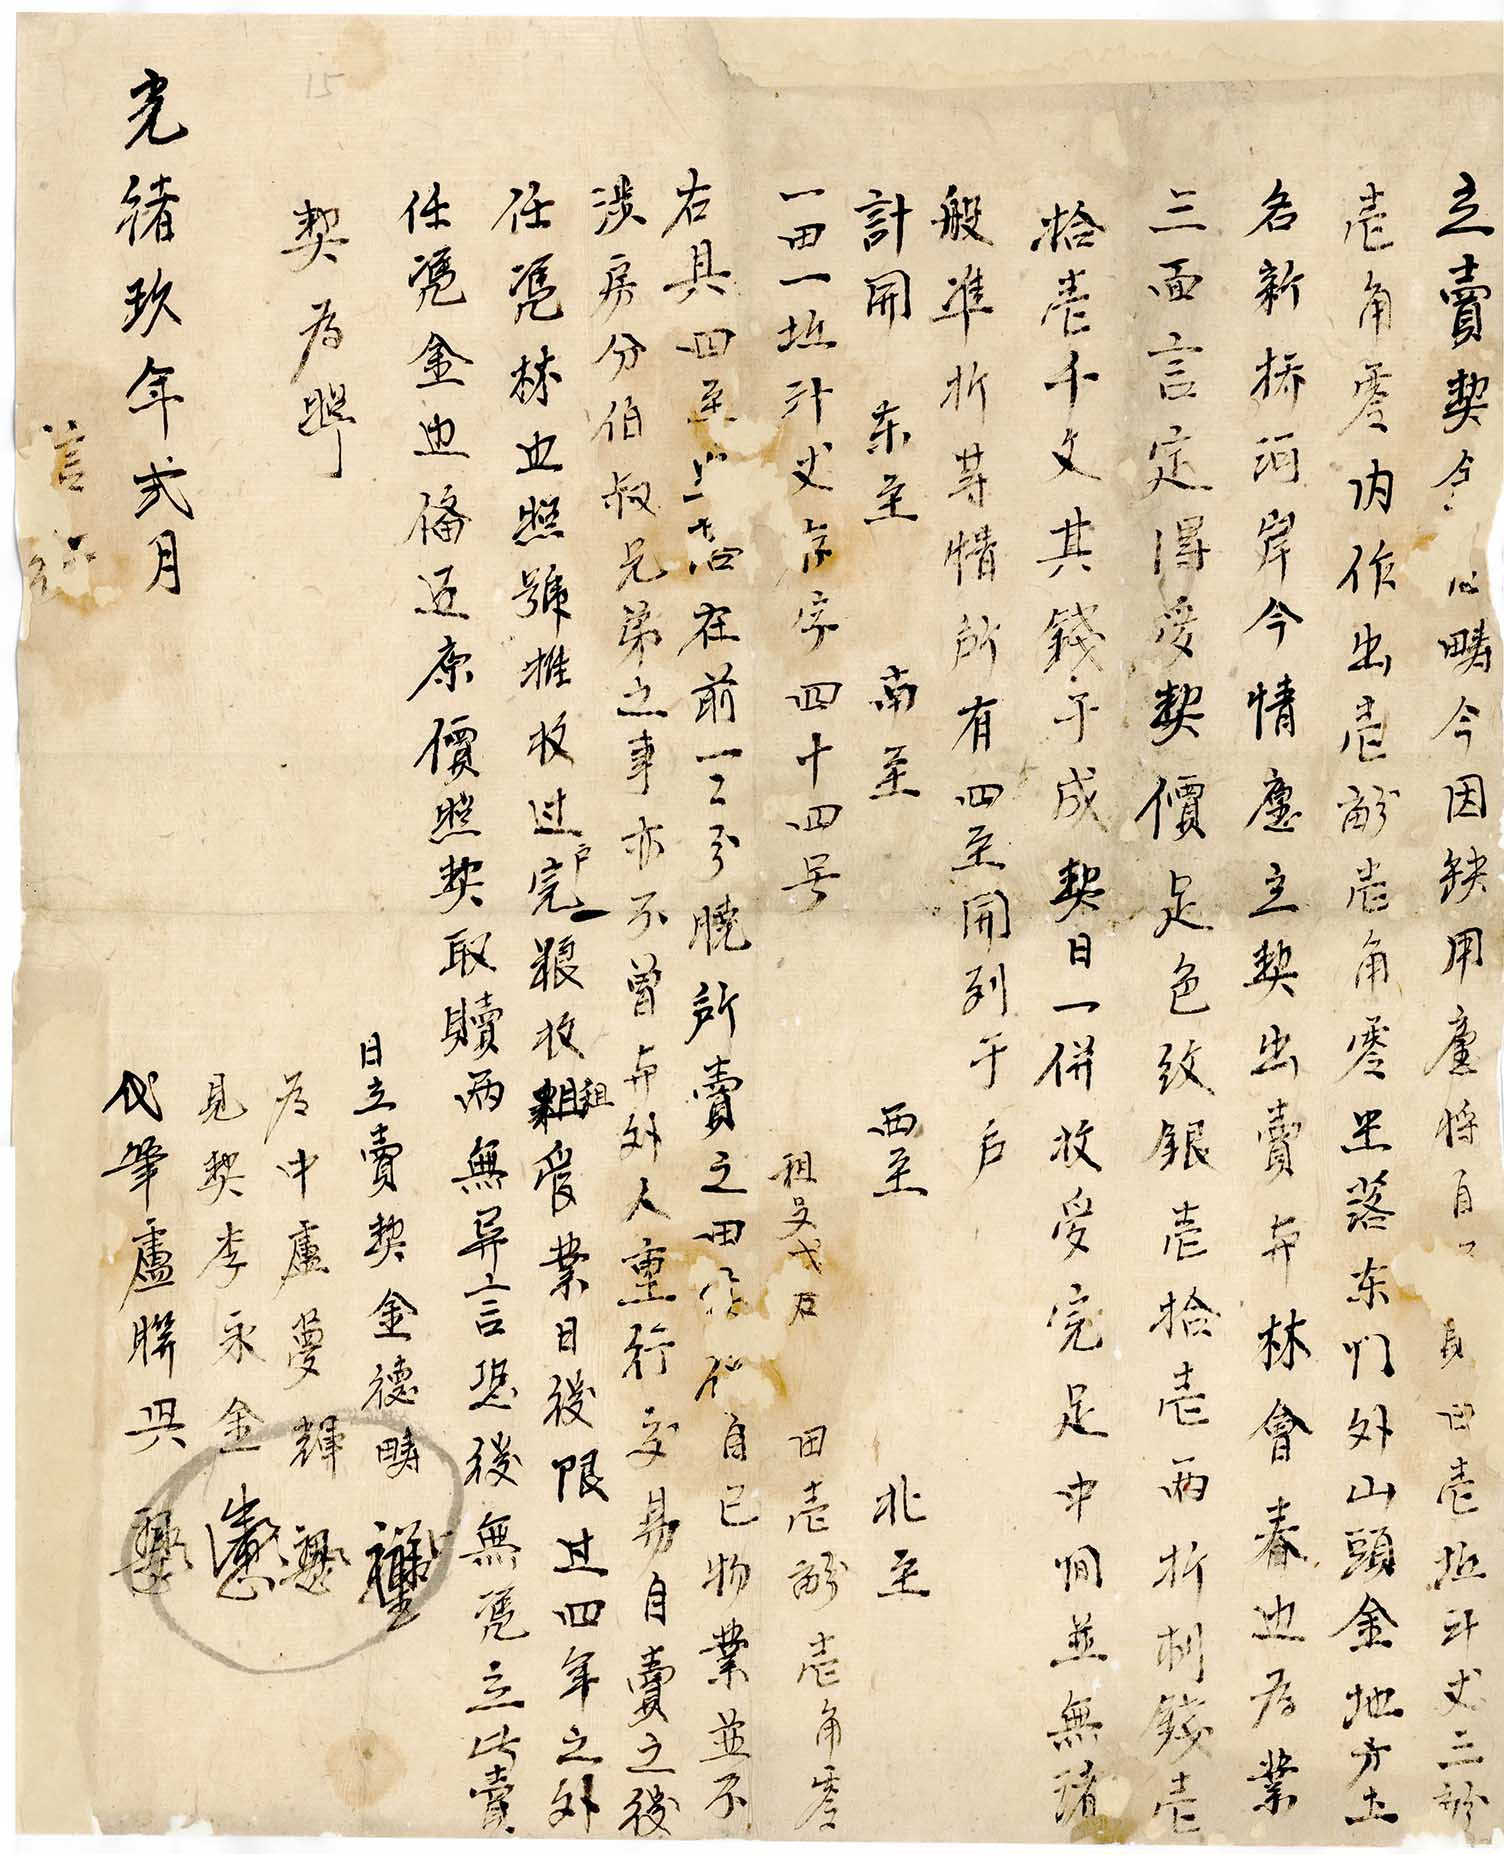 立賣契金德疇今因缺用應將自己 自田壹坵計丈三畝
壹角零内作出壹畝壹角零坐落东们外山頭金地方土
名新桥河岸今情應立契出賣与林會春边為業
三面言定得受契價足色紋銀壹拾壹两折制錢壹
拾壹千文其錢于成契日一併收受完足中間並無諸
般準折等情所有四至開列于后
計開 东至 南至 西至 北至
一田一坵计丈 字四十四号 租 弍石 田壹畝壹角零
右具四至 在前一二分曉所賣之田 自己物業並不
涉房分伯叔兄弟之事亦不曾与外人重行交易自賣之後
任凭林边照號推收过户完粮收租受業日後限过四年之外
任凭金边俻还原價照契取贖两無异言恐後無凭立此賣
契為照
光緒玖年弍月 日立賣契金德疇
為中盧夢輝
見契李永金
代筆盧聯興